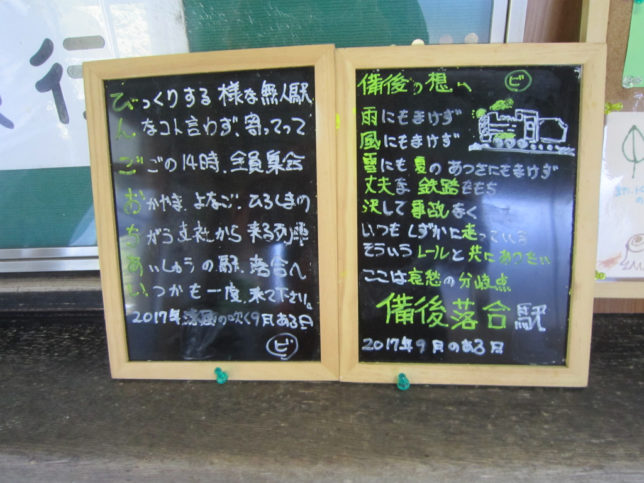 旅行
びっくりする様な無人駅
んなコト言わず、寄ってって
ごごの14時、全員集会
おかやま、よなご、ひろしまの
ちがう支社から来る列車
あいしゅうの駅、落合ん
いつかも一度、来て下さい。
2017年 の吹く9月ある日
ビ
備後の想い ビ
雨にもまけず
風にもまけず
雪にも夏のあつさにもまけず
丈夫な鉄路をもち
決して事故なく
いつもしずかに走っている
そういうレールと共にありたい
ここは哀愁の分岐点
備後落合駅
2017年9月のある日